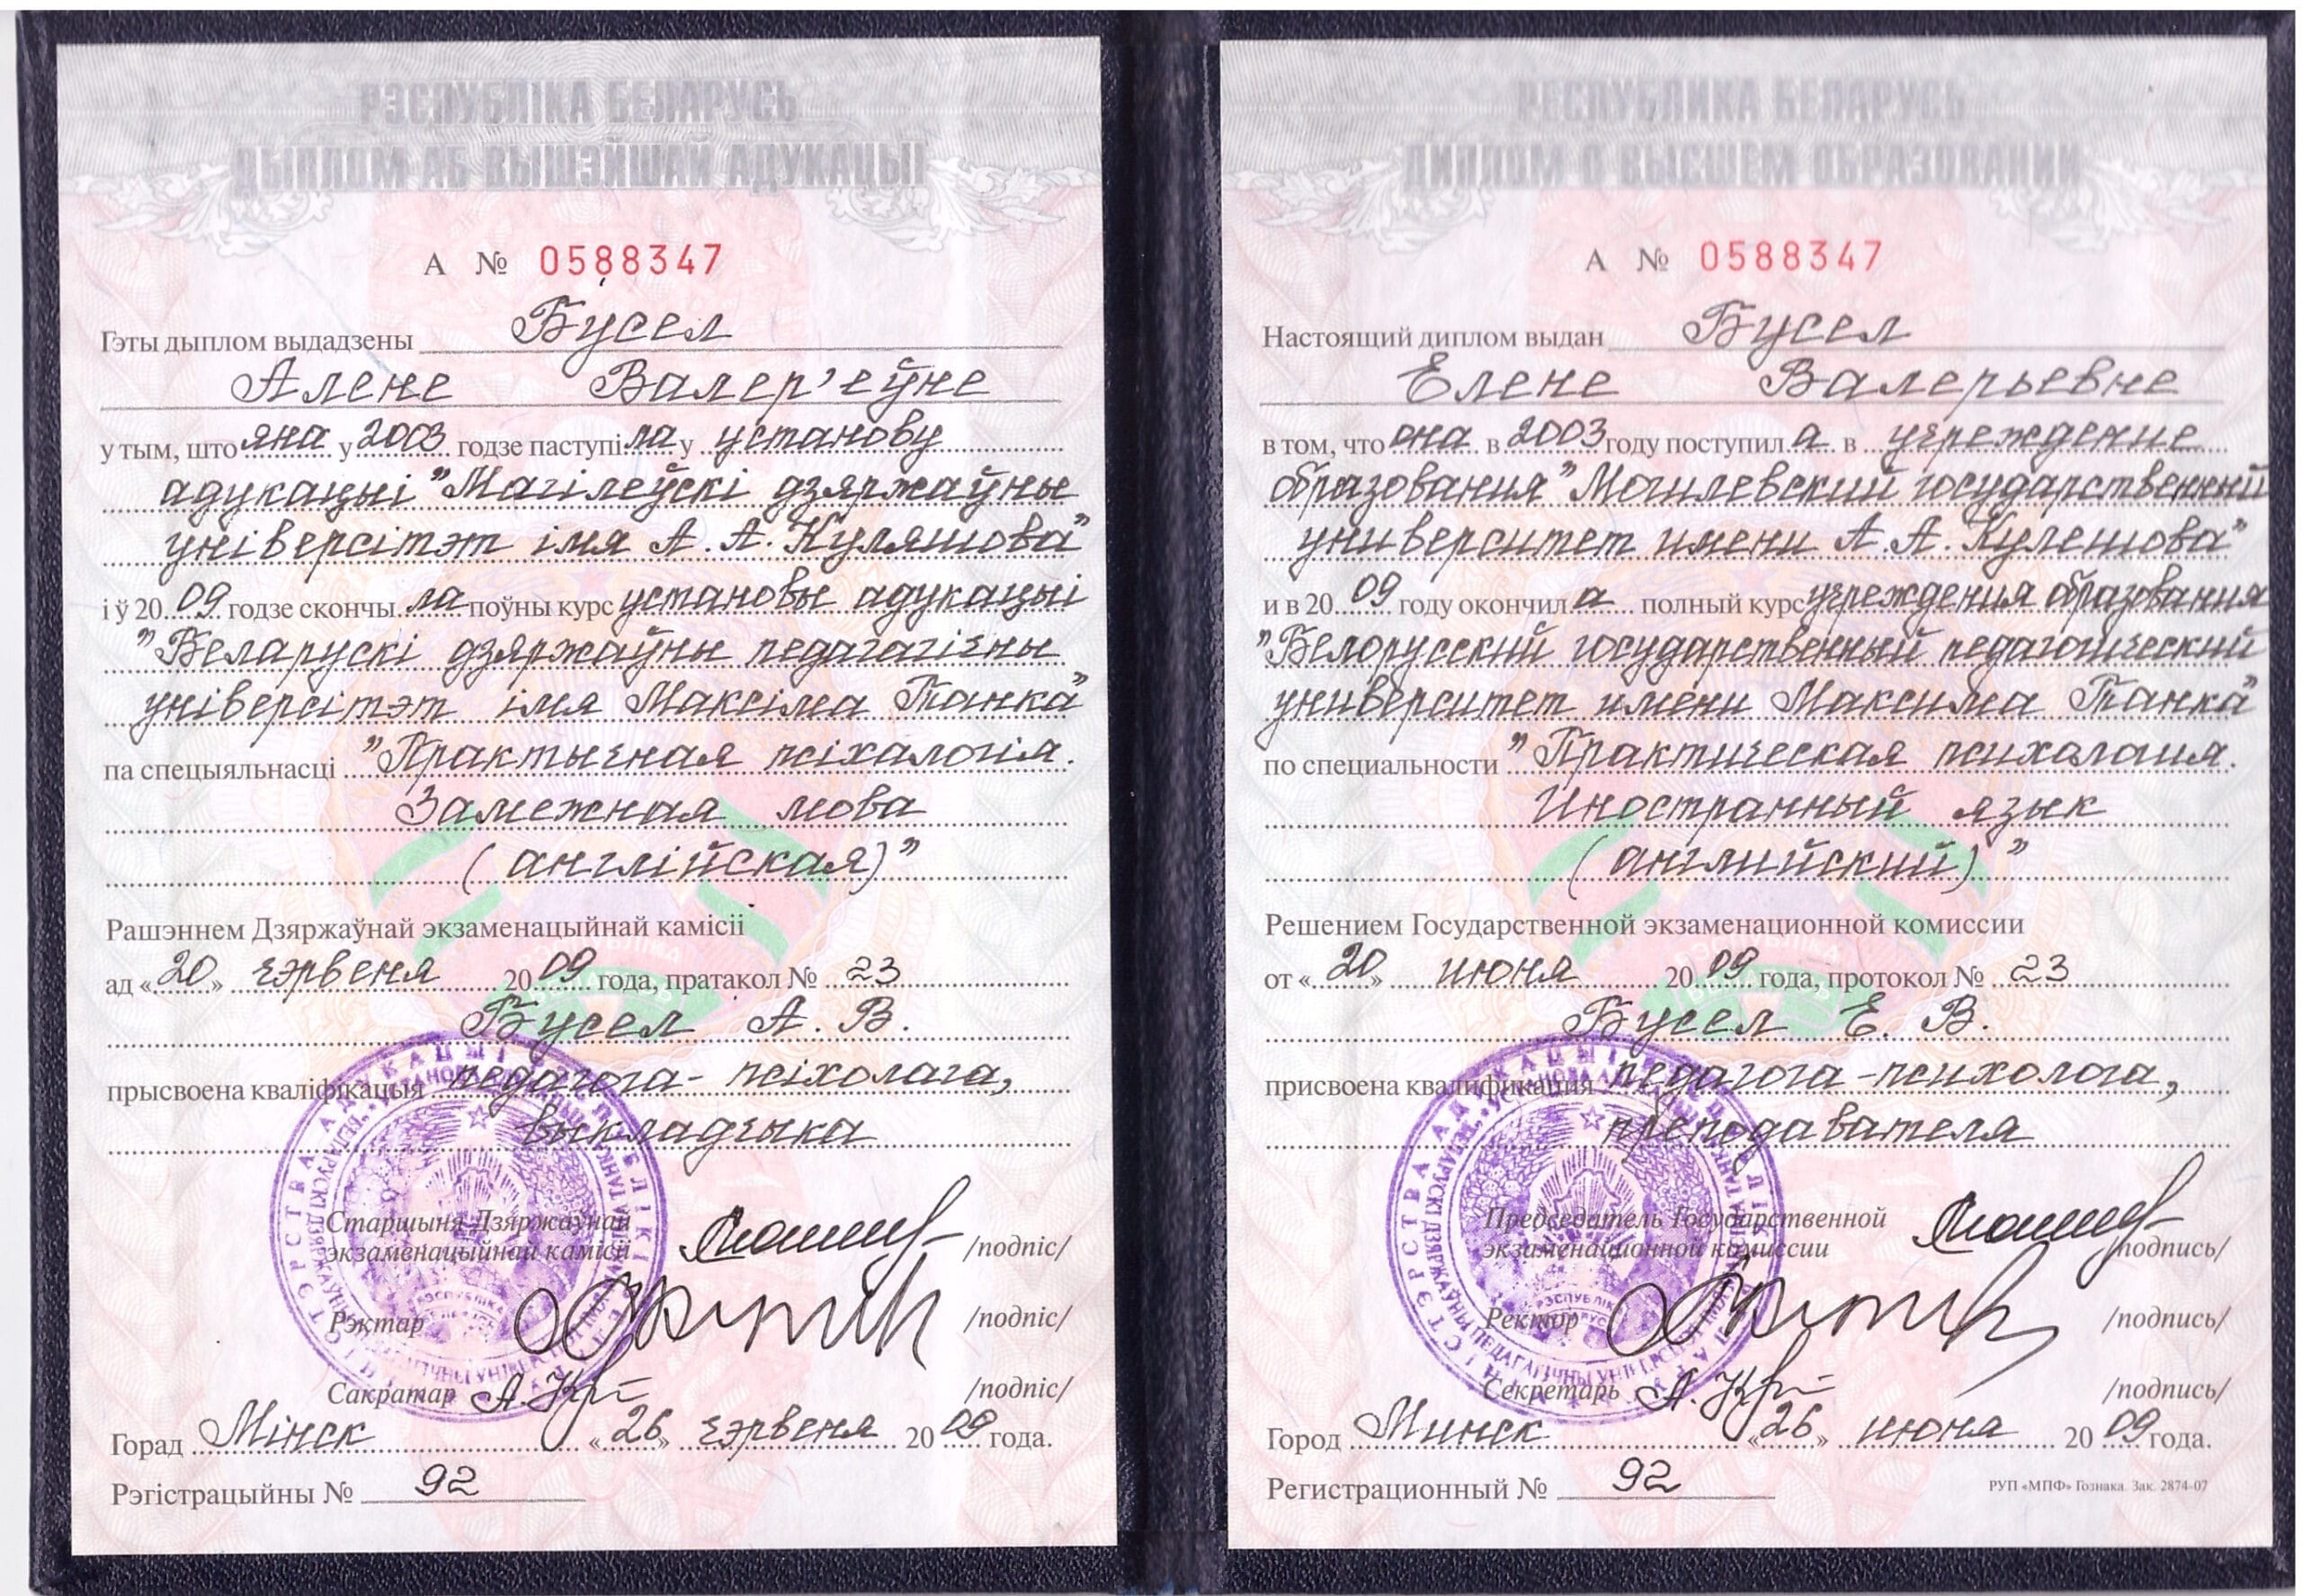 РЭСПУБЛІКА БЕЛАРУСЬ
ДЫПЛОМ АБ ВЫШЭЙШАЙ АДУКАЦЫІ
А № 0588347
Гэты дыплом выдадзены Бусел
Алене Валер'еўне
у тым, што яна у 2003 годзе паступіла у установу
адукацыі "Магілеўскі дзяржаўны
універсітэт імя А.А.Куляшова"
і ў 2009 годзе скончыла поўны курс установы адукацыі
"Беларускі дзяржаўны педагагічны
універсітэт імя Максіма Танка"
па спецыяльнасці "Практычная псіхалогія.
Замежная мова
(англійская)"
Рашэннем Дзяржаўнай экзаменацыйнай камісіі
ад «20» чэрвеня 2009 года, пратакол № 23
Бусел А. В.
прысвоена кваліфікацыя педагога-псіхолага,
выкладчыка
Старшыня Дзяржаўнай
экзаменацыйнай камісіі /подпіс/
Рэктар /подпіс/
Сакратар /подпіс/
Горад Мінск «26» чэрвеня 2009 года.
Рэгістрацыйны № 92
РЕСПУБЛИКА БЕЛАРУСЬ
ДИПЛОМ О ВЫСШЕМ ОБРАЗОВАНИИ
А № 0588347
Настоящий диплом выдан Бусел
Елене Валерьевне
в том, что она в 2003 году поступила в учреждение
образования "Могилевский государственный
университет имени А.А.Кулешова"
и в 2009 году окончила полный курс учреждения образования
"Белорусский государственный педагогический
университет имени Максима Танка"
по специальности "Практическая психология.
Иностранный язык
(английский)"
Решением Государственной экзаменационной комиссии
от «20» июня 2009 года, протокол № 23
Бусел Е. В.
присвоена квалификация педагога-психолога,
преподавателя
Председатель Государственной
экзаменационной комиссии /подпись/
Ректор /подпись/
Секретарь /подпись/
Город Минск «26» июня 2009 года.
Регистрационный № 92
РУП «МПФ» Гознака. Зак. 2874-07